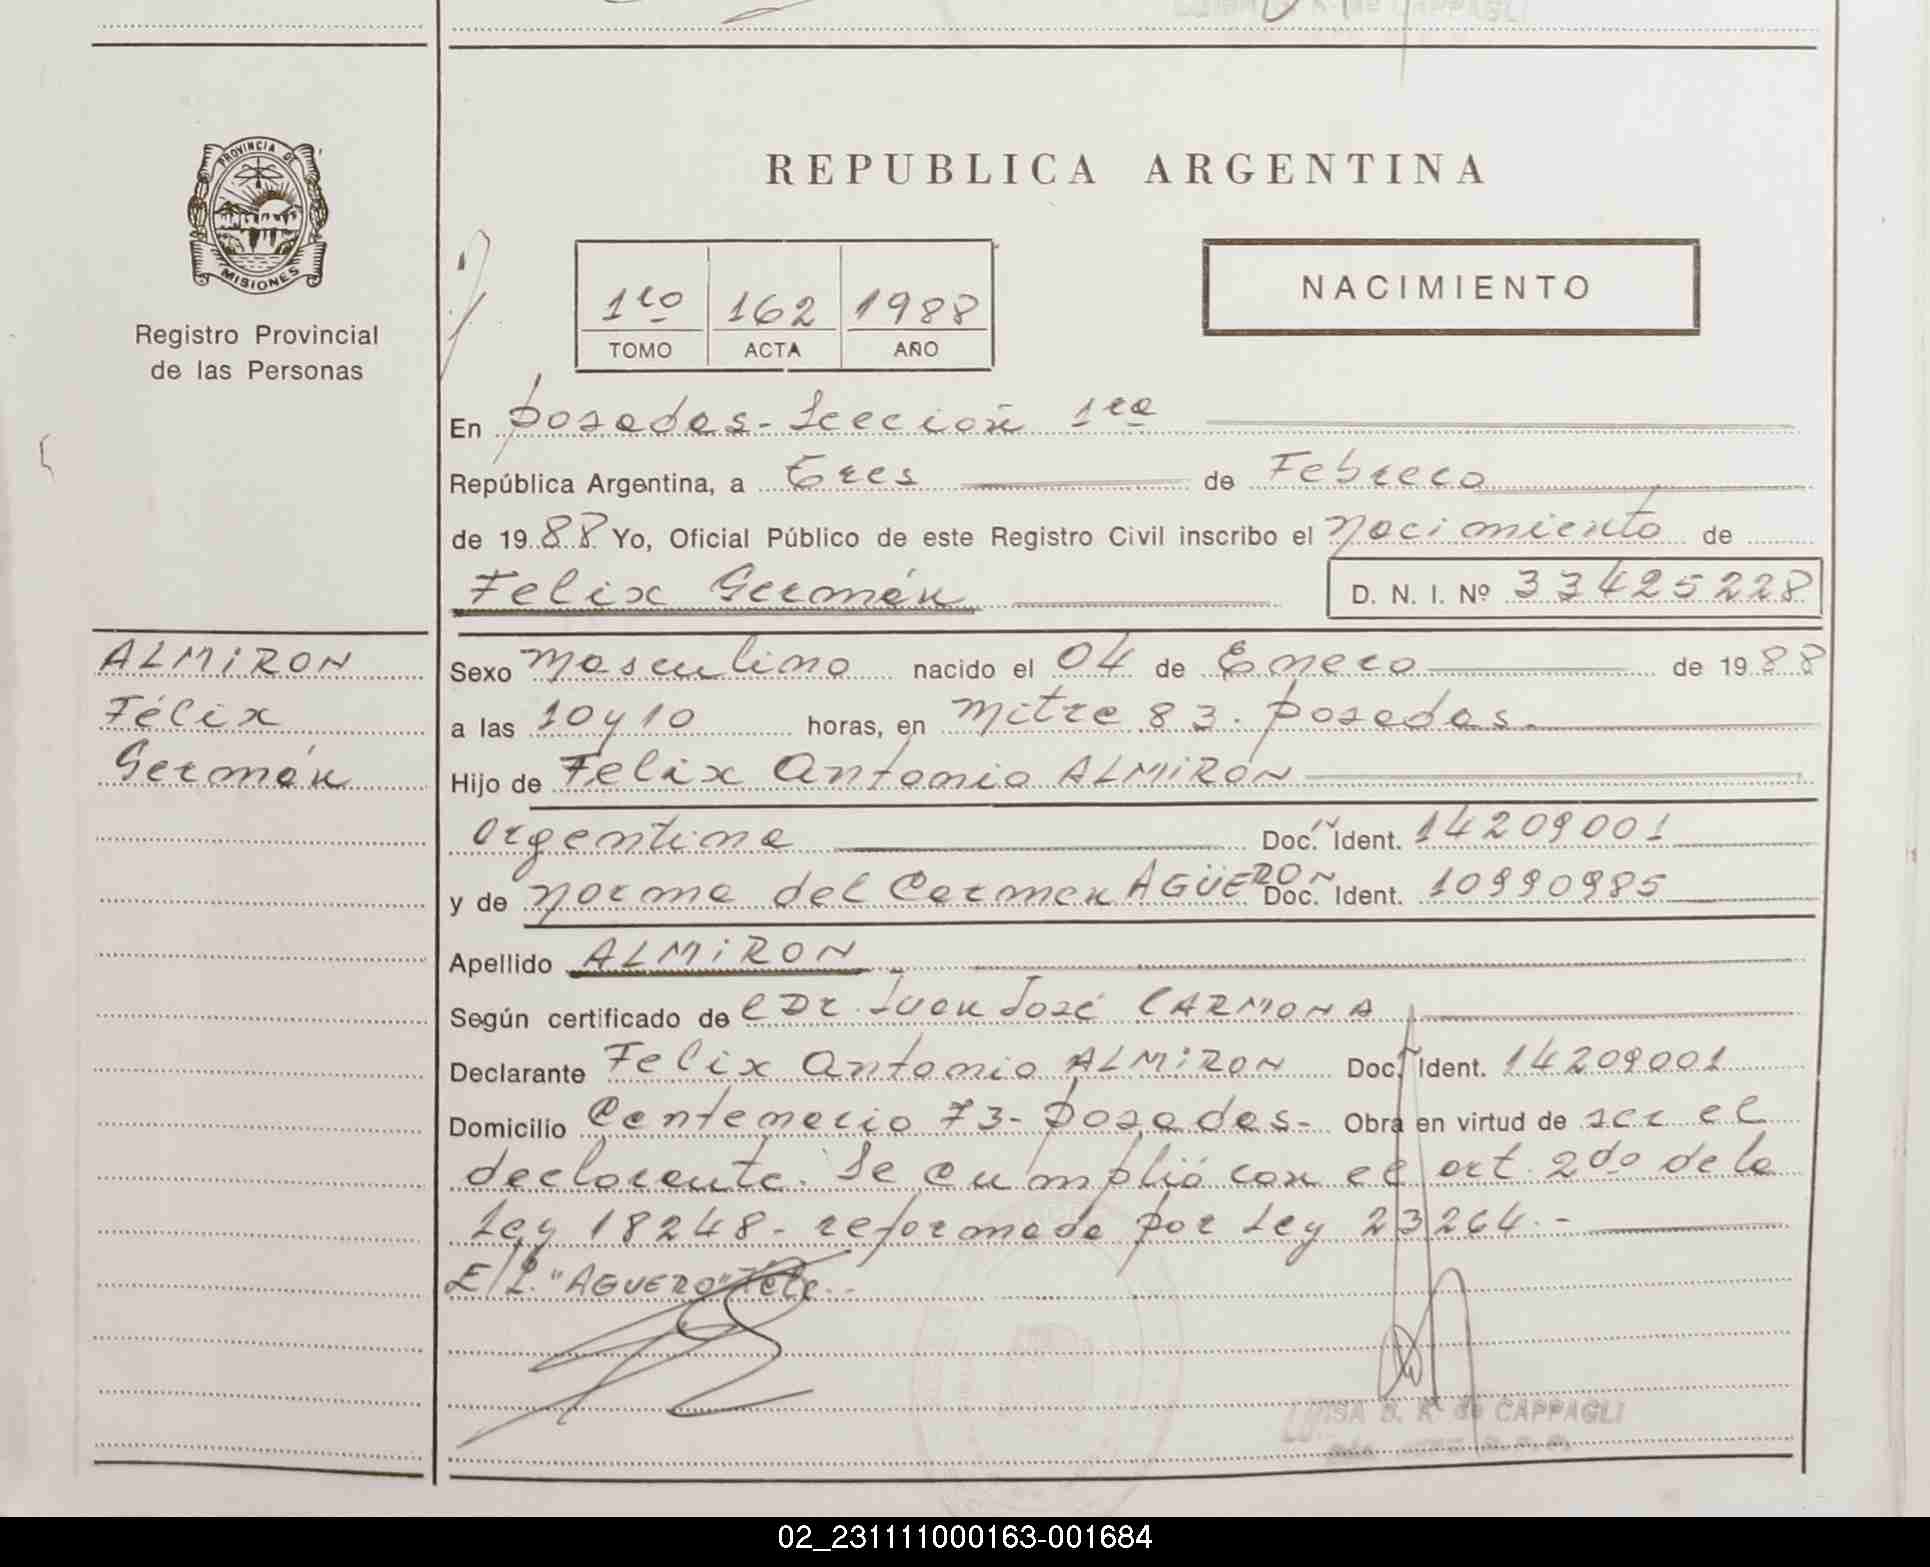 PROVINCIA DE
MISIONES
Registro Provincial
de las Personas
REPUBLICA ARGENTINA
1ro 162 1988
TOMO ACTA AÑO
NACIMIENTO
En Posadas - Sección 1ra
República Argentina, a Tres de Febrero
de 1988 Yo, Oficial Público de este Registro Civil inscribo el Nacimiento de
Felix Germán D. N. I. Nº 33425228
ALMIRON
Félix
Germán
Sexo Masculino nacido el 04 de Enero de 1988
a las 10 y 10 horas, en Mitre 83. Posadas.
Hijo de Felix Antonio ALMIRÓN
argentina Doc. Ident. 14209001
y de Norma del Carmen AGÜERO Doc. Ident. 10990985
Apellido ALMIRON
Según certificado de l Dr. Juan José CARMONA
Declarante Felix Antonio ALMIRON Doc. Ident. 14209001
Domicilio Centenario 73 - Posadas - Obra en virtud de ser el
declarante. Se cumplió con el art. 2do de la
Ley 18248 - reformada por Ley 23264.-
E/L. "AGUERO" Vale.-
LUISA B. K. de CAPPAGLI
02_231111000163-001684